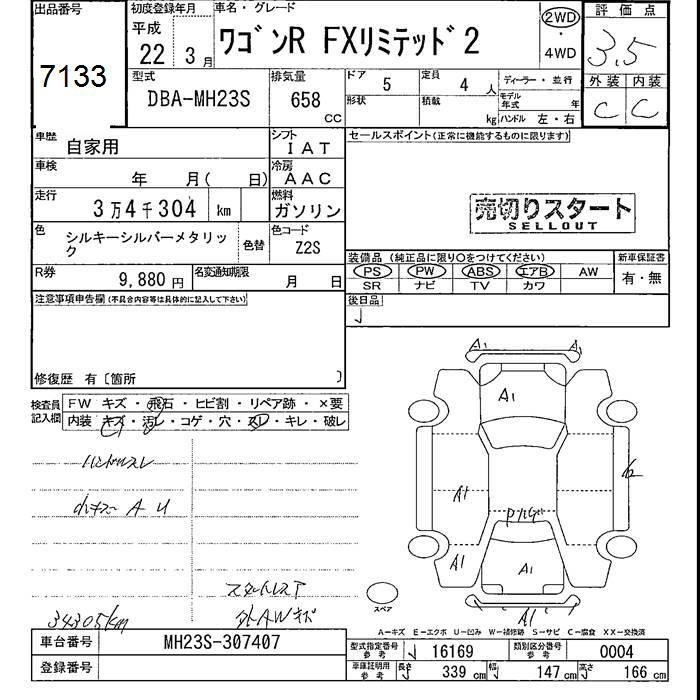 出品番号
7133
初度登録年月
平成
22 年 3 月
車名・グレード
ワゴンR FXリミテッド2
2WD
・
4WD
評価点
3.5
外装 内装
C C
型式
DBA-MH23S
排気量
658
CC
ドア 5
定員 4 人
形状
積載 kg
ディーラー・並行
モデル年式 年
ハンドル 左・右
車歴 自家用
シフト IAT
車検 年 月( 日)
冷房 AAC
走行 3万4千304 km
燃料 ガソリン
色 シルキーシルバーメタリック
色替
色コード Z2S
R券 9,880円
名変通知期限 月 日
セールスポイント(正常に機能するものに限ります)
売切りスタート
SELLOUT
装備品(純正品に限り○をつけてください)
PS PW ABS エアB AW
SR ナビ TV カワ
新車保証書
有・無
後日品
注意事項申告欄(不具合内容等は具体的に記入して下さい)
修復歴 有〔箇所 〕
検査員記入欄
FW キズ・飛石・ヒビ割・リペア跡・×要
内装 キズ・汚レ・コゲ・穴・スレ・キレ・破レ
ハンドルスレ
A U
34305km
外AWキズ
A1 A1
A1
A1
A1
A1
A1
スペア
A-キズ E-エクボ U-凹み W-補修跡 S-サビ C-腐食 XX-交換済
車台番号 MH23S-307407
登録番号
型式指定番号 参考 16169
類別区分番号 参考 0004
車庫証明用 参考
長さ 339 cm
幅 147 cm
高さ 166 cm